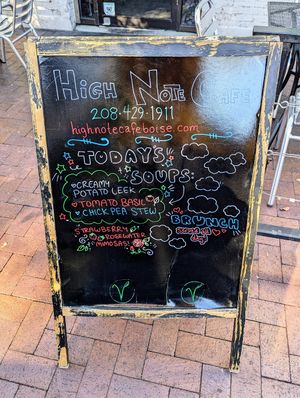 High Note Cafe
208-429-1911
highnotecafeboise.com
TODAYS
SOUPS:
CREAMY
POTATO LEEK
TOMATO BASIL
CHICKPEA STEW
STRAWBERRY
ROSEWATER
MIMOSAS!
BRUNCH